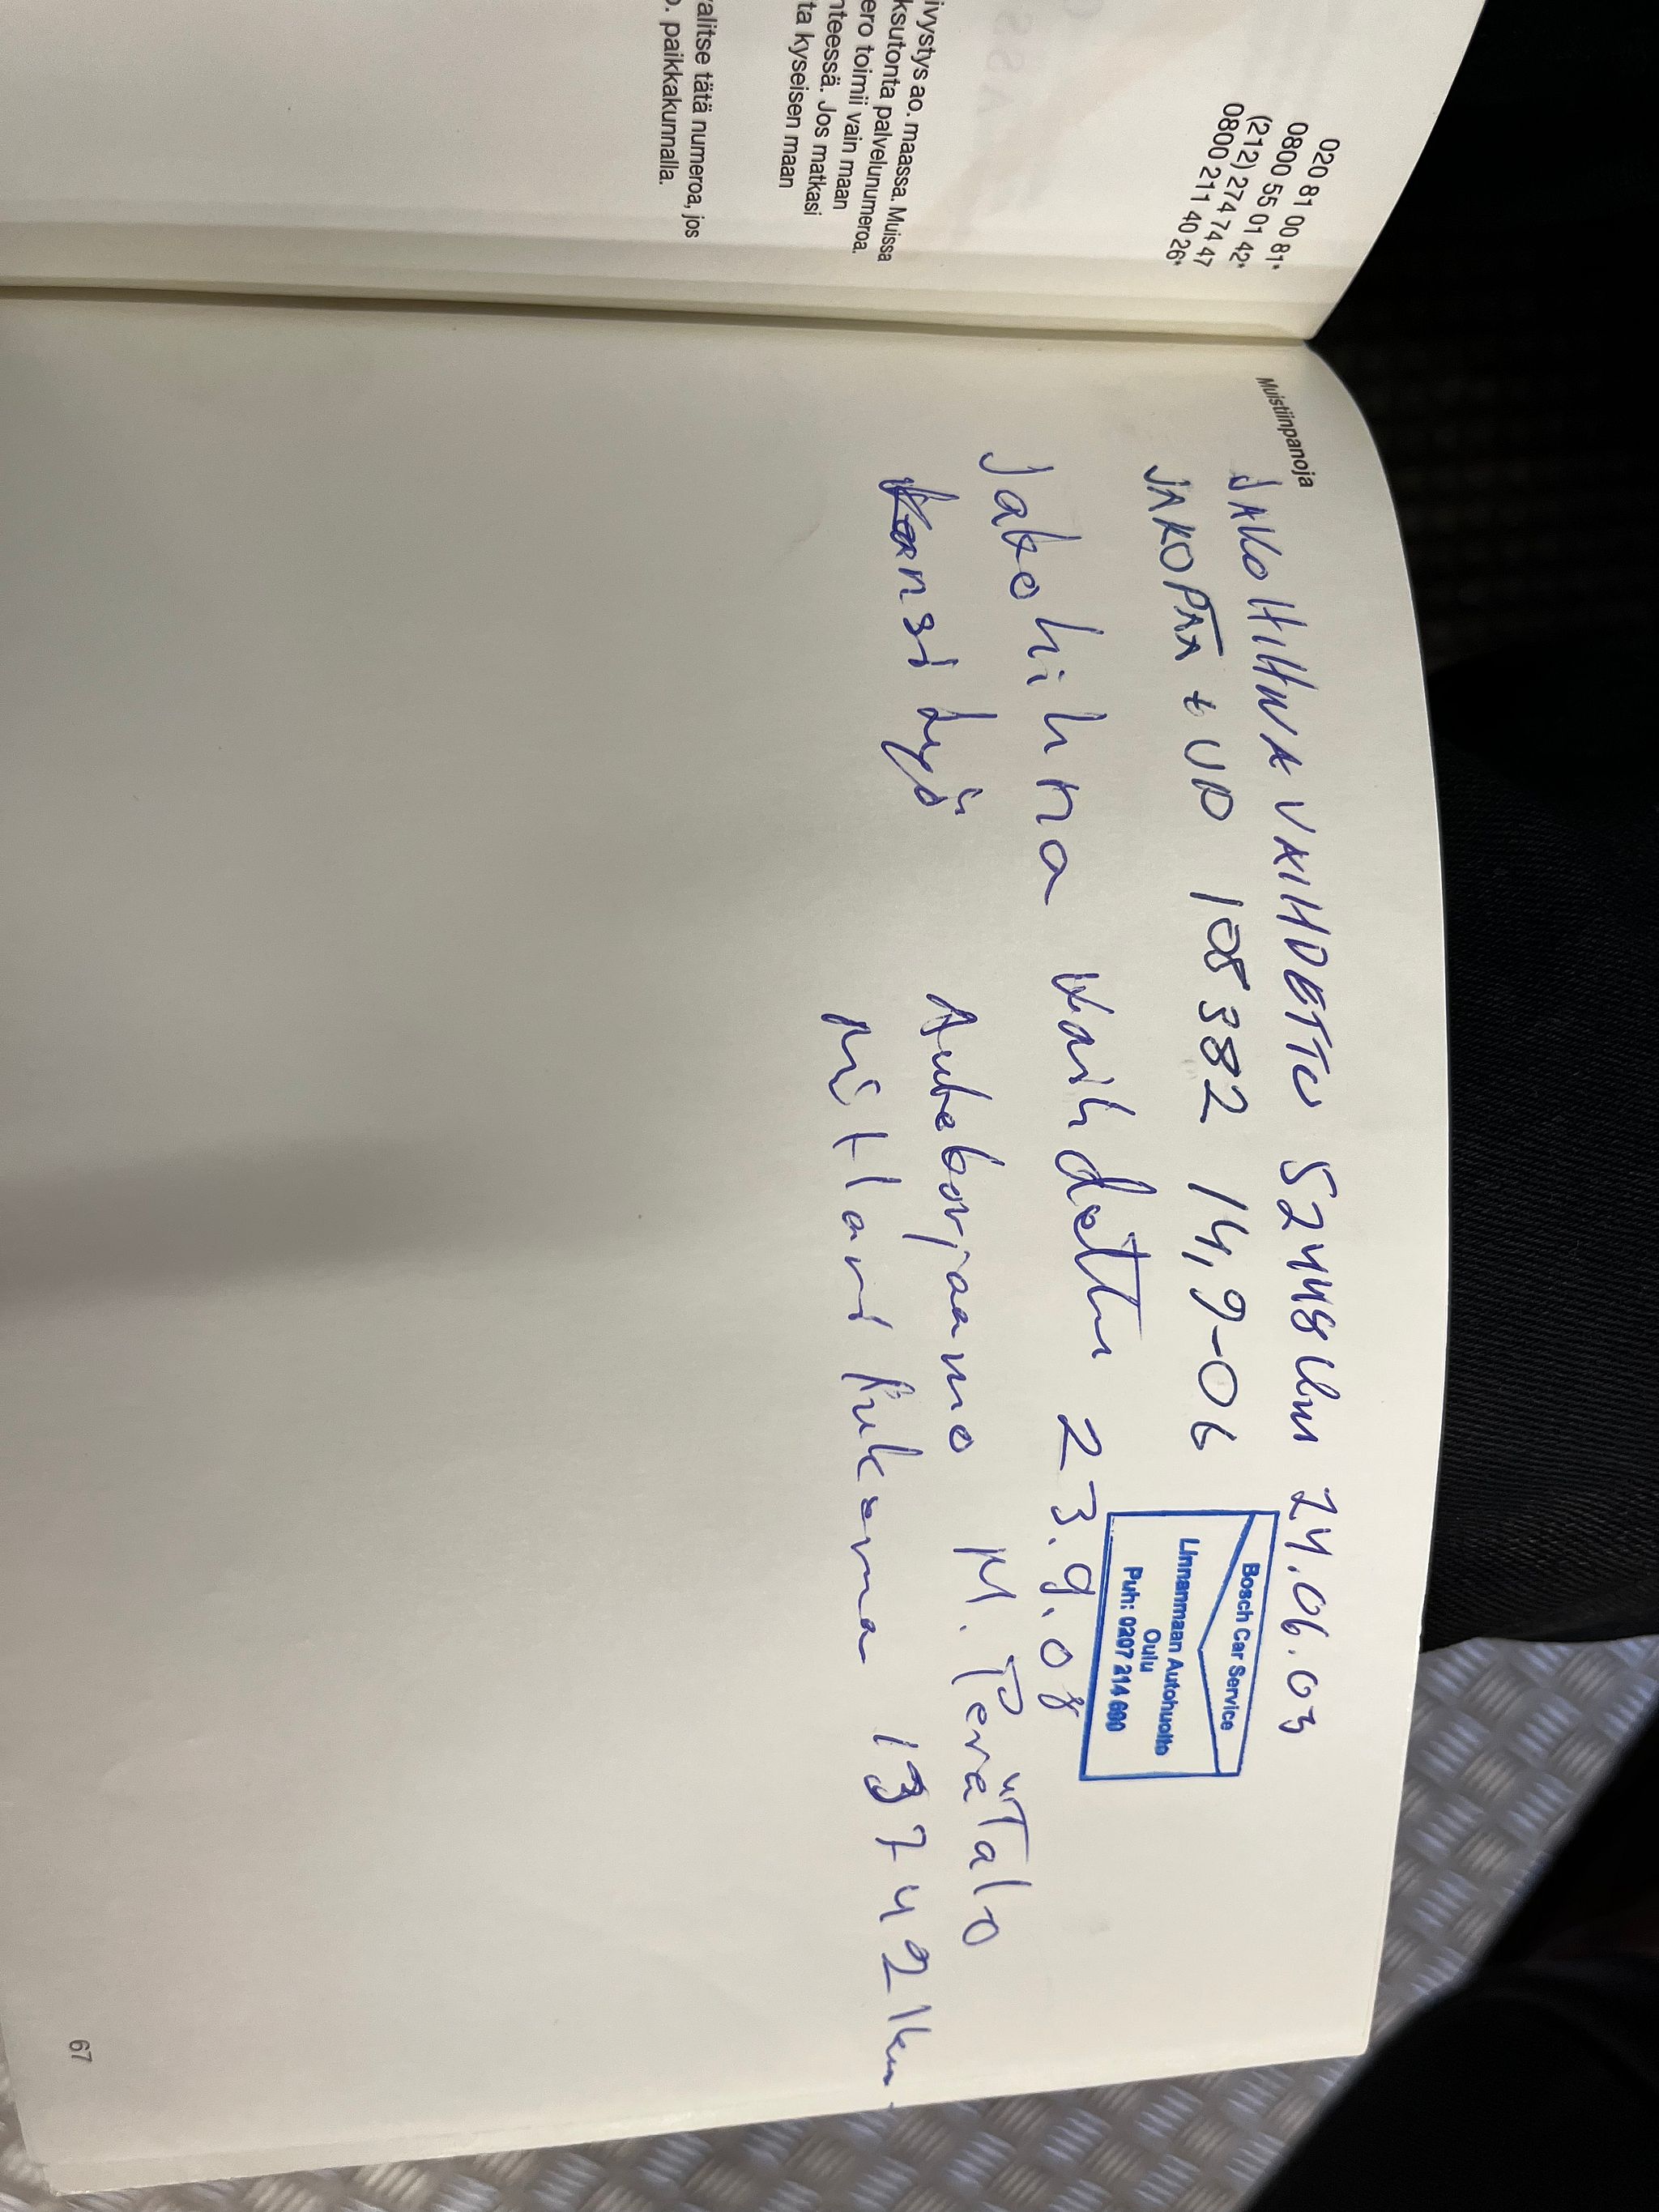 020 81 00 81*
0800 55 01 42*
(212) 274 74 47
0800 211 40 26*
ivystys ao. maassa. Muissa
ksutonta palvelunumeroa.
ero toimii vain maan
nteessä. Jos matkasi
ta kyseisen maan
alitse tätä numeroa, jos
o. paikkakunnalla.
Muistiinpanoja
JAKOHIHNA VAIHDETTU 52448 km 24.06.03
JAKOPÄÄ + VP 108382 14,9-06
Bosch Car Service
Linnanmaan Autohuolto
Oulu
Puh: 0207 214 600
Jakohihna Vaihdettu 23.9.08
Kansi työ Autokorjaamo M. PeräTalo
Mittari lukema 137421km
67